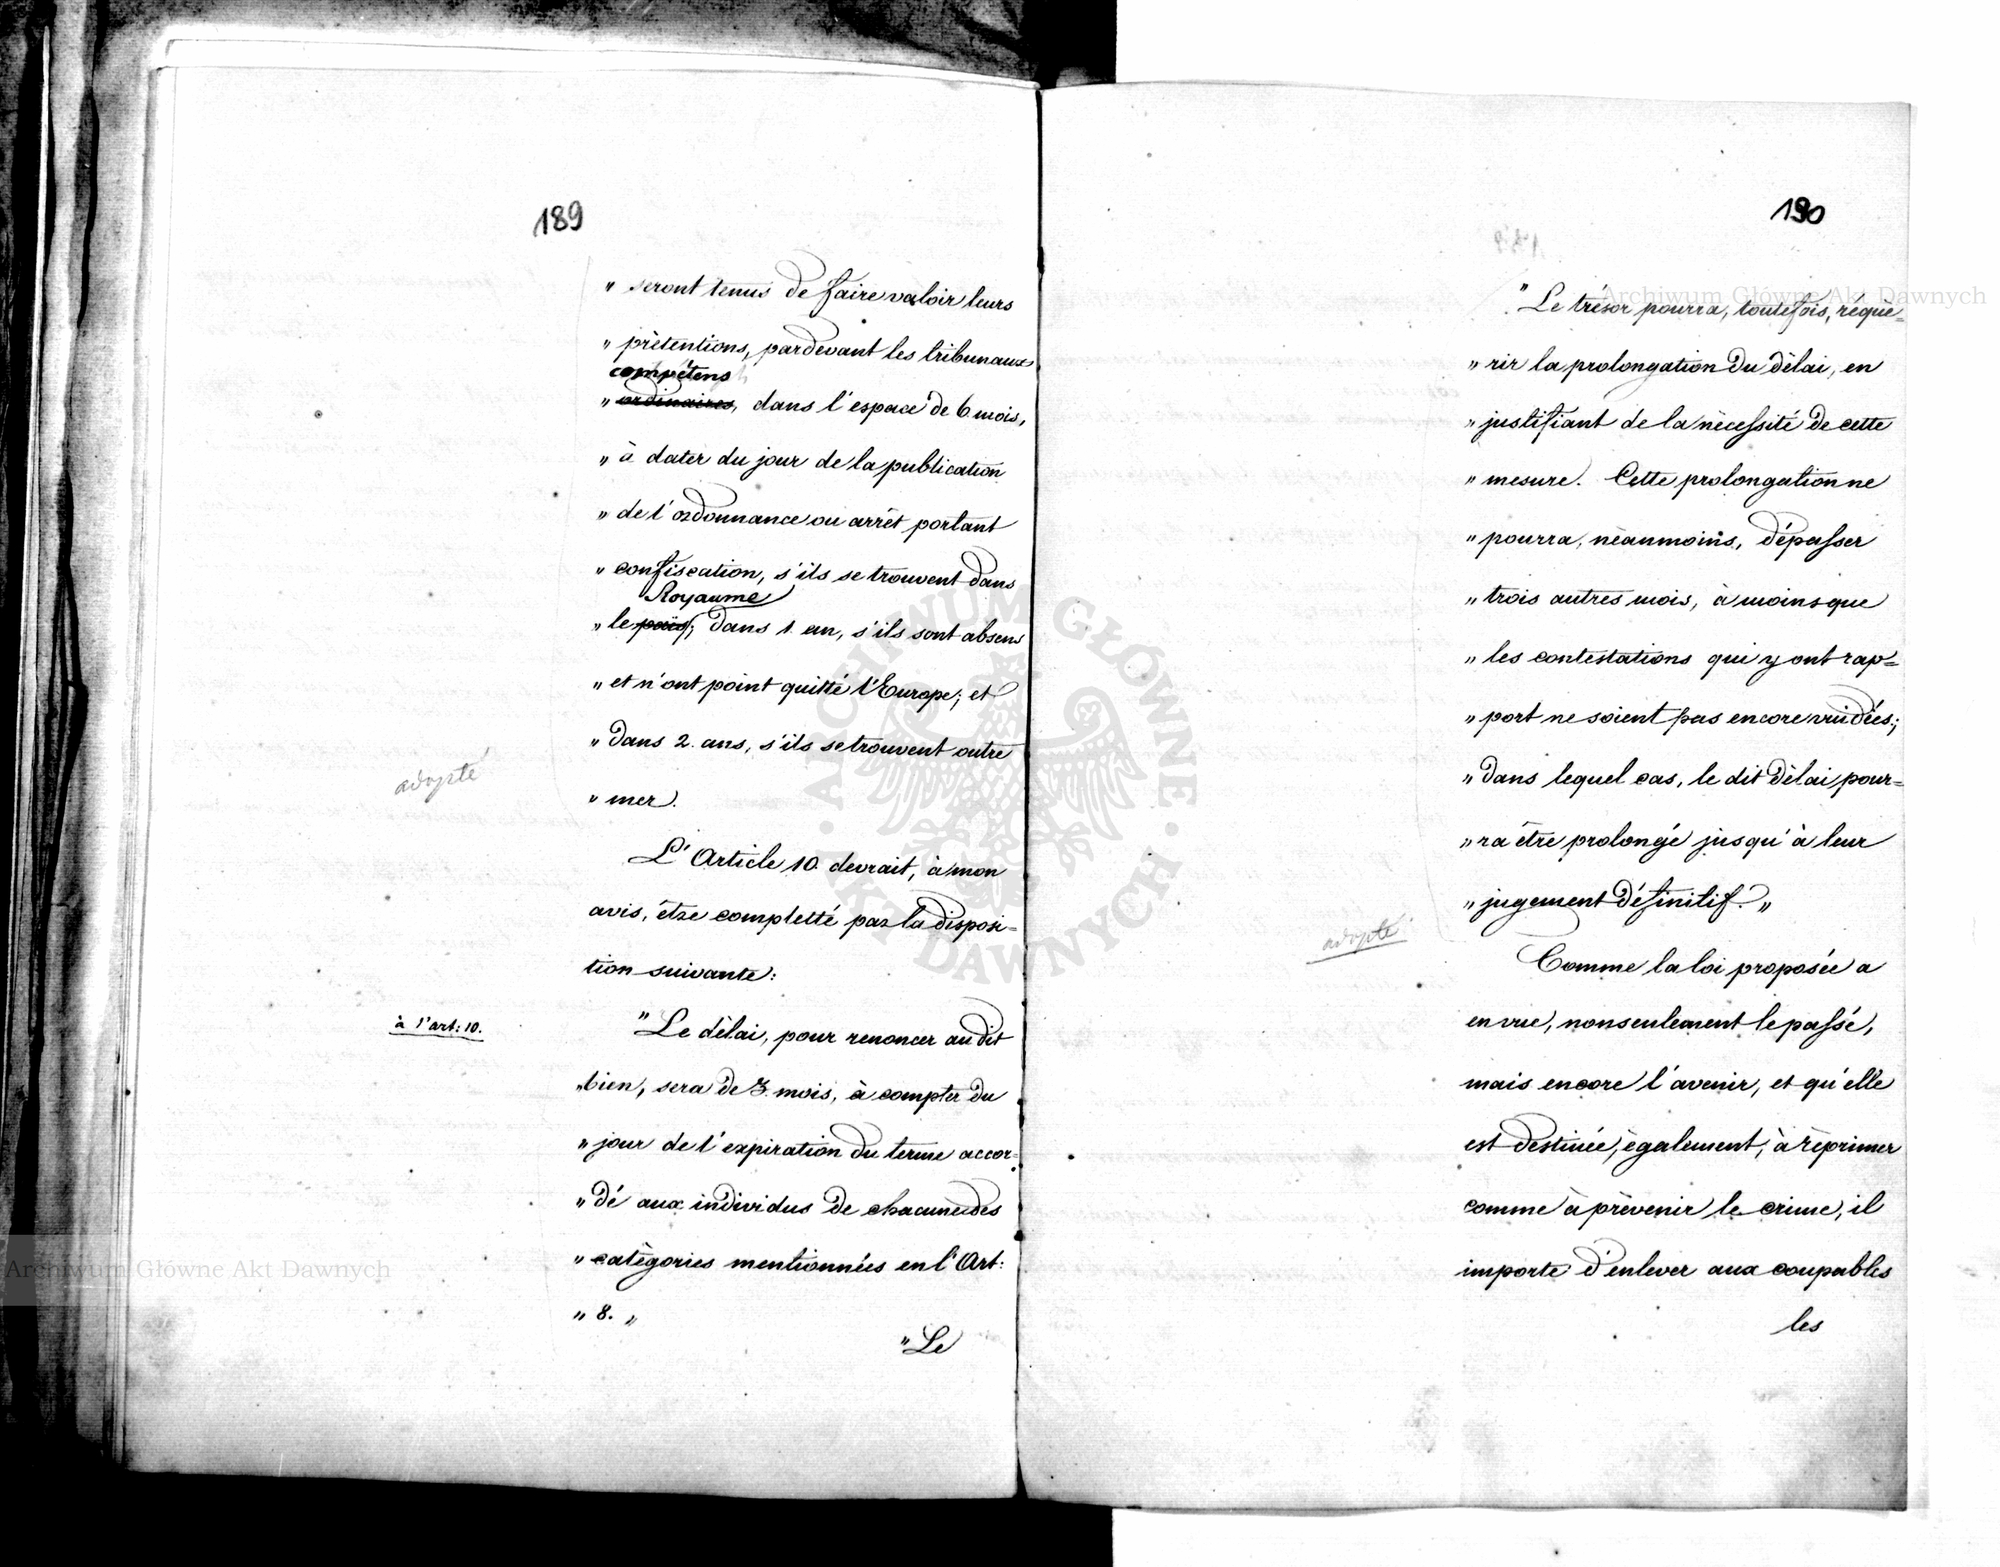 189
„ seront tenus de faire valoir leurs
„ prètentions, pardevant les tribunaux
compétens
„ ordinaires, dans l'espace de 6 mois,
„ à dater du jour de la publication
„ de l'ordonnance ou arrêt portant
„ confiscation, s'ils se trouvent dans
Royaume
„ le païs; dans 1. an, s'ils sont absens
„ et n'ont point quitté l'Europe; et
„ dans 2. ans, s'ils se trouvent outre
adopté
„ mer.
L'Article 10. devrait, à mon
avis, être completté par la disposi=
tion suivante:
à l'art: 10.
"Le délai, pour renoncer au dit
„ bien, sera de 3. mois, à compter du
„ jour de l'expiration du terme accor=
„ dé aux individus de chacune des
„ catègories mentionnées en l'Art:
„ 8. „
"Le
190
"Le trésor pourra, toutefois, réquè=
„ rir la prolongation du dèlai, en
„ justifiant de la nècessité de cette
„ mesure. Cette prolongation ne
„ pourra, nèanmoins, dépasser
„ trois autres mois, à moins que
„ les contestations qui y ont rap=
„ port ne soient pas encore vuidées;
„ dans lequel cas, le dit dèlai pour=
„ ra être prolongé jusqu'à leur
„ jugement définitif. „
adopté
Comme la loi proposée a
en vue, nonseulement le passé,
mais encore l'avenir, et qu'elle
est destinée, ègalement, à rèprimer
comme à prèvenir le crime, il
importe d'enlever aux coupables
les
Archiwum Główne Akt Dawnych
Archiwum Główne Akt Dawnych
ARCHIWUM GŁÓWNE · AKT DAWNYCH ·